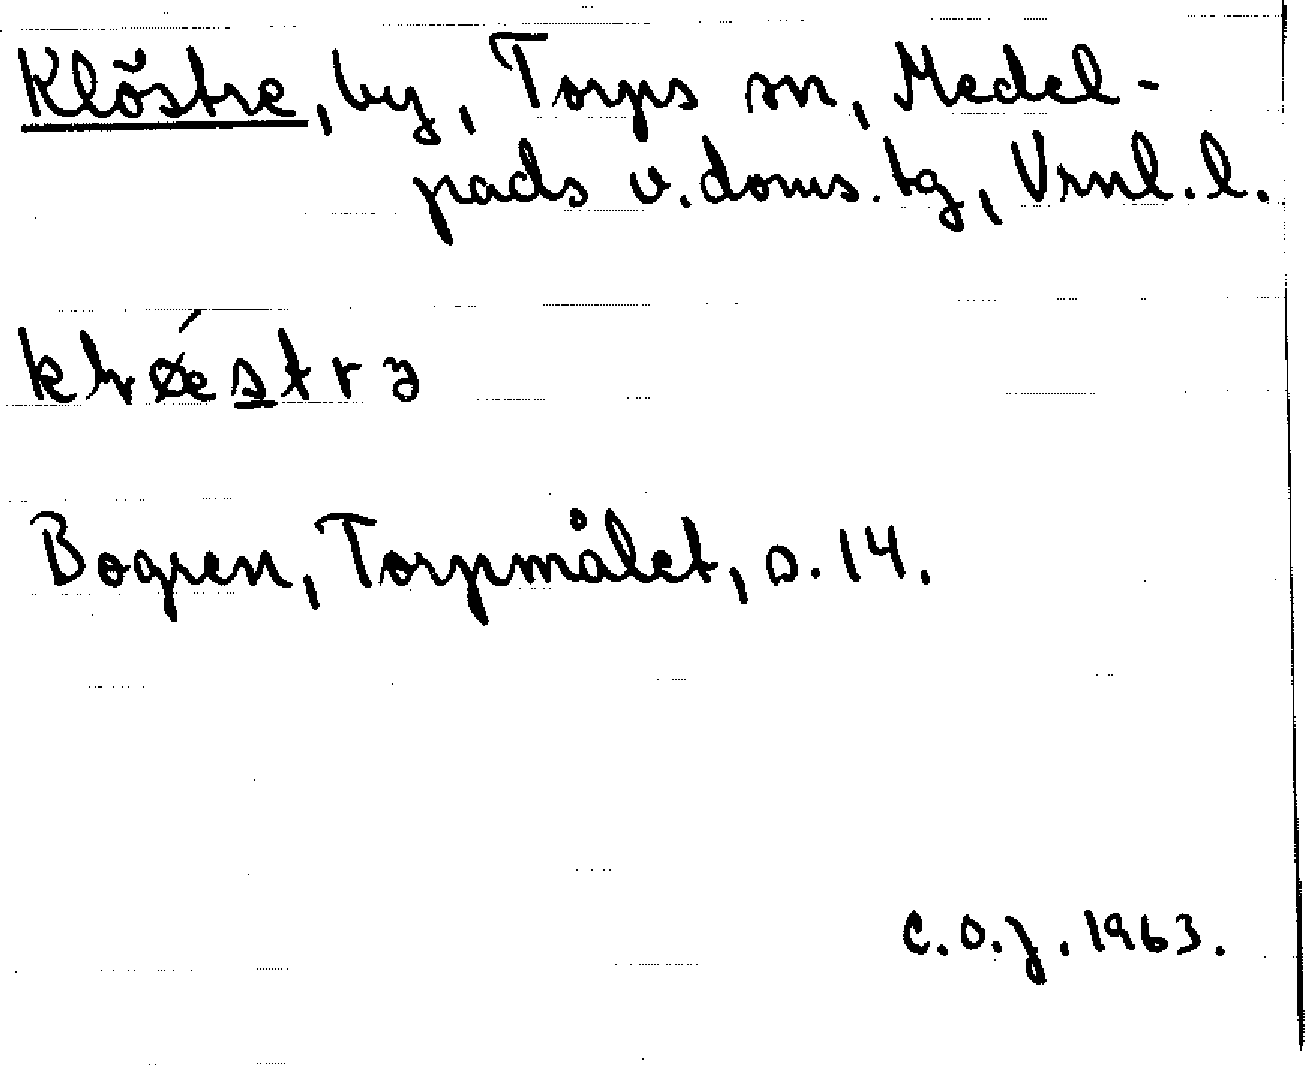 Klöstre, by, Torps sn, Medel-
pads v. doms. tg, Vrnl. l.
Bogren, Torpmålet, s. 14.
C.O.J. 1963.